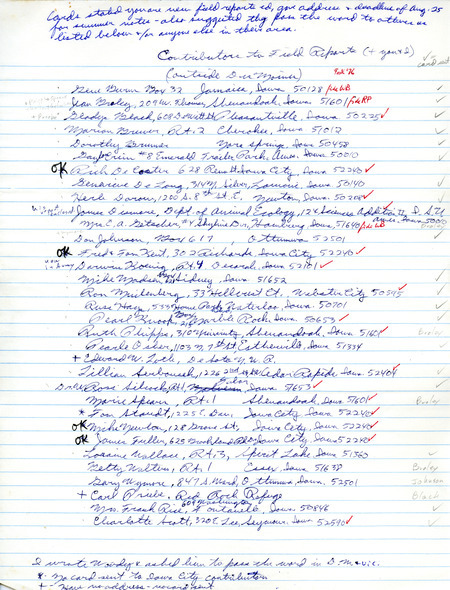 Cards stated you are new field reports ed, gave address & deadline of Aug. 25
for summer notes - also suggested they pass the word to others as
listed below & for anyone else in their area.
Contributors to Field Reports (+ you & I)
(outside Des Moines)
Gene Burns Box 32 Jamaica, Iowa 50128
Jean Braley, 209 W. Thomas, Shenandoah, Iowa 51601
Gladys Black, Pleasantville, Iowa 50225
Marion Brewer, Rt. 2 Cherokee, Iowa 51012
Dorothy Brunner Nora Springs, Iowa 50458
Gary Crim #8 Emerald Trailer Park, Ames, Iowa 50010
OK Rich De Coster 628 Iowa City, Iowa 52240
Genevieve De Long, 314 N. Silver, Lamoni, Iowa 50140
Herb Dorow, 1200 S. 8th St. E. Newton, Iowa 50208
James Dinsmore, Dept. of Animal Ecology, 124 Science Addition, I.S.U.
Ames, Iowa 50010
Mrs. E. A. Getscher, #4 Hamburg, Iowa, 51640
Don Johnson, Box 617, Ottumwa 52501
OK Fred & Tom Kent, 302 Richards, Iowa City 52240
Darwin Koenig, Rt. 4 Decorah, Iowa 52101
Mike Madsen, Sidney, Iowa 51652
Ron Mulenberg, 33 Hillcrest Ct., Webster City 50595
Russ Hays, Waterloo, Iowa 50701
Pearl Knoop, Marble Rock, Iowa 50653
Ruth Phipps, 310 University, Shenandoah, Iowa 51601
Pearle Osher, 1103 N. 7th St Estherville, Iowa 51334
+ Edward W. Loth, De Soto N.W.R.
Lillian Serbousek, 1226 2nd Cedar Rapids, Iowa 52404
Ross Silcock, Rt. 1, Iowa 51653
Marie Spears, Rt. 1 Shenandoah, Iowa 51601
* Tom Staudt, 1225 E. Dav. Iowa City, Iowa 52240
OK Mike Newlon, 128 Grove St., Iowa City, Iowa 52240
OK James Fuller, 6 Iowa City, Iowa 52240
Loraine Wallace, Rt. 3, Spirit Lake, Iowa 51360
Betty Walters, Rt. 1 Essex, Iowa 51638
Gary Wymore, 847 S. Ward, Ottumwa, Iowa 52501
+ Carl Priebe, Red Rock Refuge
Mrs. Frank Rice, 604 Washington, Fontanelle, Iowa 50846
Charlotte Scott, 320 E. Lee, Seymour, Iowa 52590
I wrote Woody & asked him to pass the word in D.M. & vic.
* - No card sent to Iowa City contributors
+ - Have no address - no card sent